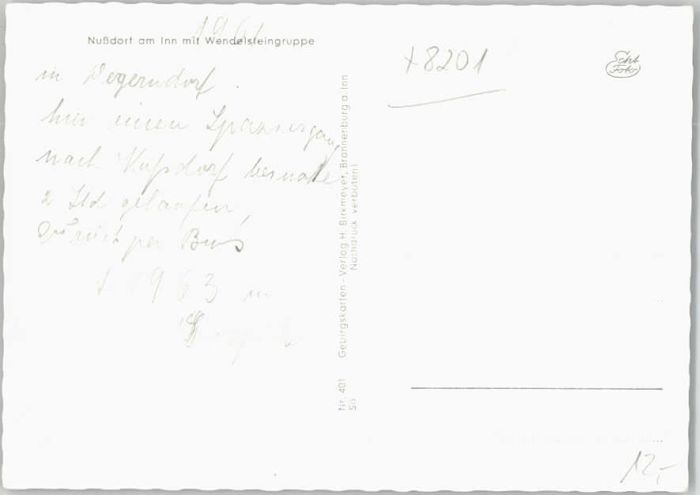 1961
Nußdorf am Inn mit Wendelsteingruppe
in Degerndorf.
hier einen Spaziergang
nach Nußdorf beinahe
2 Std gelaufen,
Zurück per Bus
+ 1963 in
+8201
Echt
Foto
Gebirgskarten-Verlag H. Birkmeyer, Brannenburg a. Inn
Nachdruck verboten!
Nr. 401
So
12,-